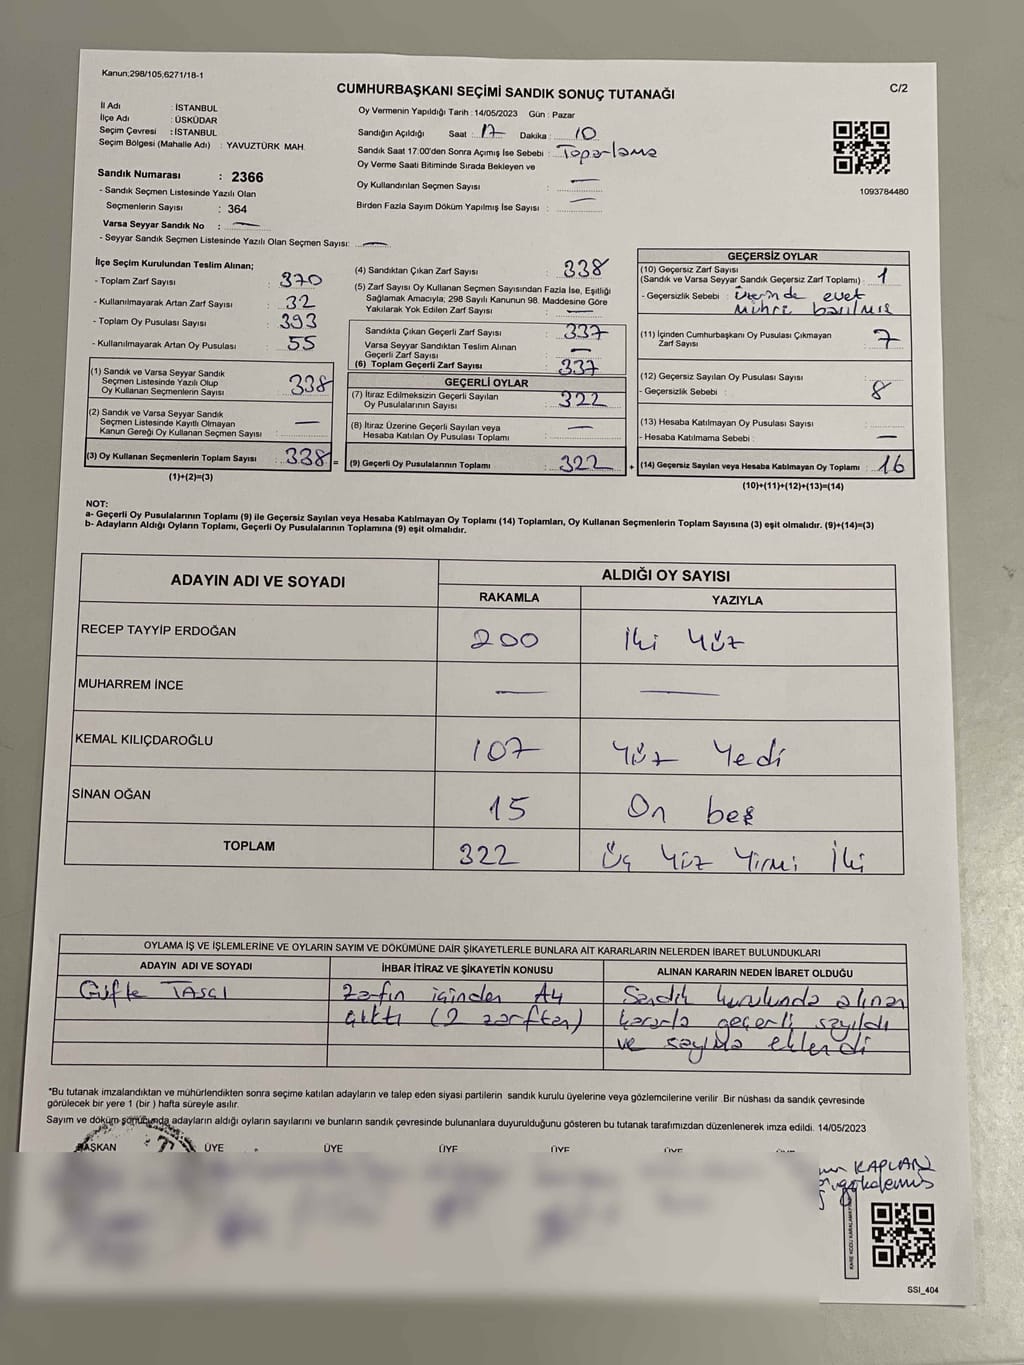 Kanun;298/105,6271/18-1
C/2
CUMHURBAŞKANI SEÇİMİ SANDIK SONUÇ TUTANAĞI
İl Adı : İSTANBUL
İlçe Adı : ÜSKÜDAR
Seçim Çevresi : İSTANBUL
Seçim Bölgesi (Mahalle Adı) : YAVUZTÜRK MAH.
Oy Vermenin Yapıldığı Tarih : 14/05/2023 Gün : Pazar
Sandığın Açıldığı Saat : 17 Dakika : 10
Sandık Saat 17:00'den Sonra Açımış İse Sebebi : Toparlama
Oy Verme Saati Bitiminde Sırada Bekleyen ve
Oy Kullandırılan Seçmen Sayısı : —
Birden Fazla Sayım Döküm Yapılmış İse Sayısı : —
1093784480
Sandık Numarası : 2366
- Sandık Seçmen Listesinde Yazılı Olan
Seçmenlerin Sayısı : 364
Varsa Seyyar Sandık No : —
- Seyyar Sandık Seçmen Listesinde Yazılı Olan Seçmen Sayısı: —
İlçe Seçim Kurulundan Teslim Alınan;
- Toplam Zarf Sayısı : 370
- Kullanılmayarak Artan Zarf Sayısı : 32
- Toplam Oy Pusulası Sayısı : 393
- Kullanılmayarak Artan Oy Pusulası : 55
(1) Sandık ve Varsa Seyyar Sandık
Seçmen Listesinde Yazılı Olup
Oy Kullanan Seçmenlerin Sayısı : 338
(2) Sandık ve Varsa Seyyar Sandık
Seçmen Listesinde Kayıtlı Olmayan
Kanun Gereği Oy Kullanan Seçmen Sayısı : —
(3) Oy Kullanan Seçmenlerin Toplam Sayısı : 338 =
(1)+(2)=(3)
(4) Sandıktan Çıkan Zarf Sayısı : 338
(5) Zarf Sayısı Oy Kullanan Seçmen Sayısından Fazla İse, Eşitliği
Sağlamak Amacıyla; 298 Sayılı Kanunun 98. Maddesine Göre
Yakılarak Yok Edilen Zarf Sayısı : —
Sandıkta Çıkan Geçerli Zarf Sayısı : 337
Varsa Seyyar Sandıktan Teslim Alınan
Geçerli Zarf Sayısı : —
(6) Toplam Geçerli Zarf Sayısı : 337
GEÇERLİ OYLAR
(7) İtiraz Edilmeksizin Geçerli Sayılan
Oy Pusulalarının Sayısı : 322
(8) İtiraz Üzerine Geçerli Sayılan veya
Hesaba Katılan Oy Pusulası Toplamı : —
(9) Geçerli Oy Pusulalarının Toplamı : 322 +
GEÇERSİZ OYLAR
(10) Geçersiz Zarf Sayısı
(Sandık ve Varsa Seyyar Sandık Geçersiz Zarf Toplamı) : 1
- Geçersizlik Sebebi : üzerinde evet
mührü basılmış
(11) İçinden Cumhurbaşkanı Oy Pusulası Çıkmayan
Zarf Sayısı : 7
(12) Geçersiz Sayılan Oy Pusulası Sayısı : 8
- Geçersizlik Sebebi :
(13) Hesaba Katılmayan Oy Pusulası Sayısı :
- Hesaba Katılmama Sebebi : —
(14) Geçersiz Sayılan veya Hesaba Katılmayan Oy Toplamı : 16
(10)+(11)+(12)+(13)=(14)
NOT:
a- Geçerli Oy Pusulalarının Toplamı (9) ile Geçersiz Sayılan veya Hesaba Katılmayan Oy Toplamı (14) Toplamları, Oy Kullanan Seçmenlerin Toplam Sayısına (3) eşit olmalıdır. (9)+(14)=(3)
b- Adayların Aldığı Oyların Toplamı, Geçerli Oy Pusulalarının Toplamına (9) eşit olmalıdır.
ADAYIN ADI VE SOYADI ALDIĞI OY SAYISI
RAKAMLA YAZIYLA
RECEP TAYYİP ERDOĞAN 200 İki Yüz
MUHARREM İNCE — —
KEMAL KILIÇDAROĞLU 107 Yüz Yedi
SİNAN OĞAN 15 On beş
TOPLAM 322 Üç Yüz Yirmi İki
OYLAMA İŞ VE İŞLEMLERİNE VE OYLARIN SAYIM VE DÖKÜMÜNE DAİR ŞİKAYETLERLE BUNLARA AİT KARARLARIN NELERDEN İBARET BULUNDUKLARI
ADAYIN ADI VE SOYADI İHBAR İTİRAZ VE ŞİKAYETİN KONUSU ALINAN KARARIN NEDEN İBARET OLDUĞU
TAŞCI Zarfın içinden A4 Sandık kurulunda alınan
çıktı (2 zarftan) kararla geçerli sayıldı
ve sayıma eklendi
*Bu tutanak imzalandıktan ve mühürlendikten sonra seçime katılan adayların ve talep eden siyasi partilerin sandık kurulu üyelerine veya gözlemcilerine verilir .Bir nüshası da sandık çevresinde
görülecek bir yere 1 (bir ) hafta süreyle asılır.
Sayım ve döküm sonucunda adayların aldığı oyların sayılarını ve bunların sandık çevresinde bulunanlara duyurulduğunu gösteren bu tutanak tarafımızdan düzenlenerek imza edildi. 14/05/2023
BAŞKAN ÜYE ÜYE ÜYE ÜYE ÜYE
KAPLAN
SSI_404